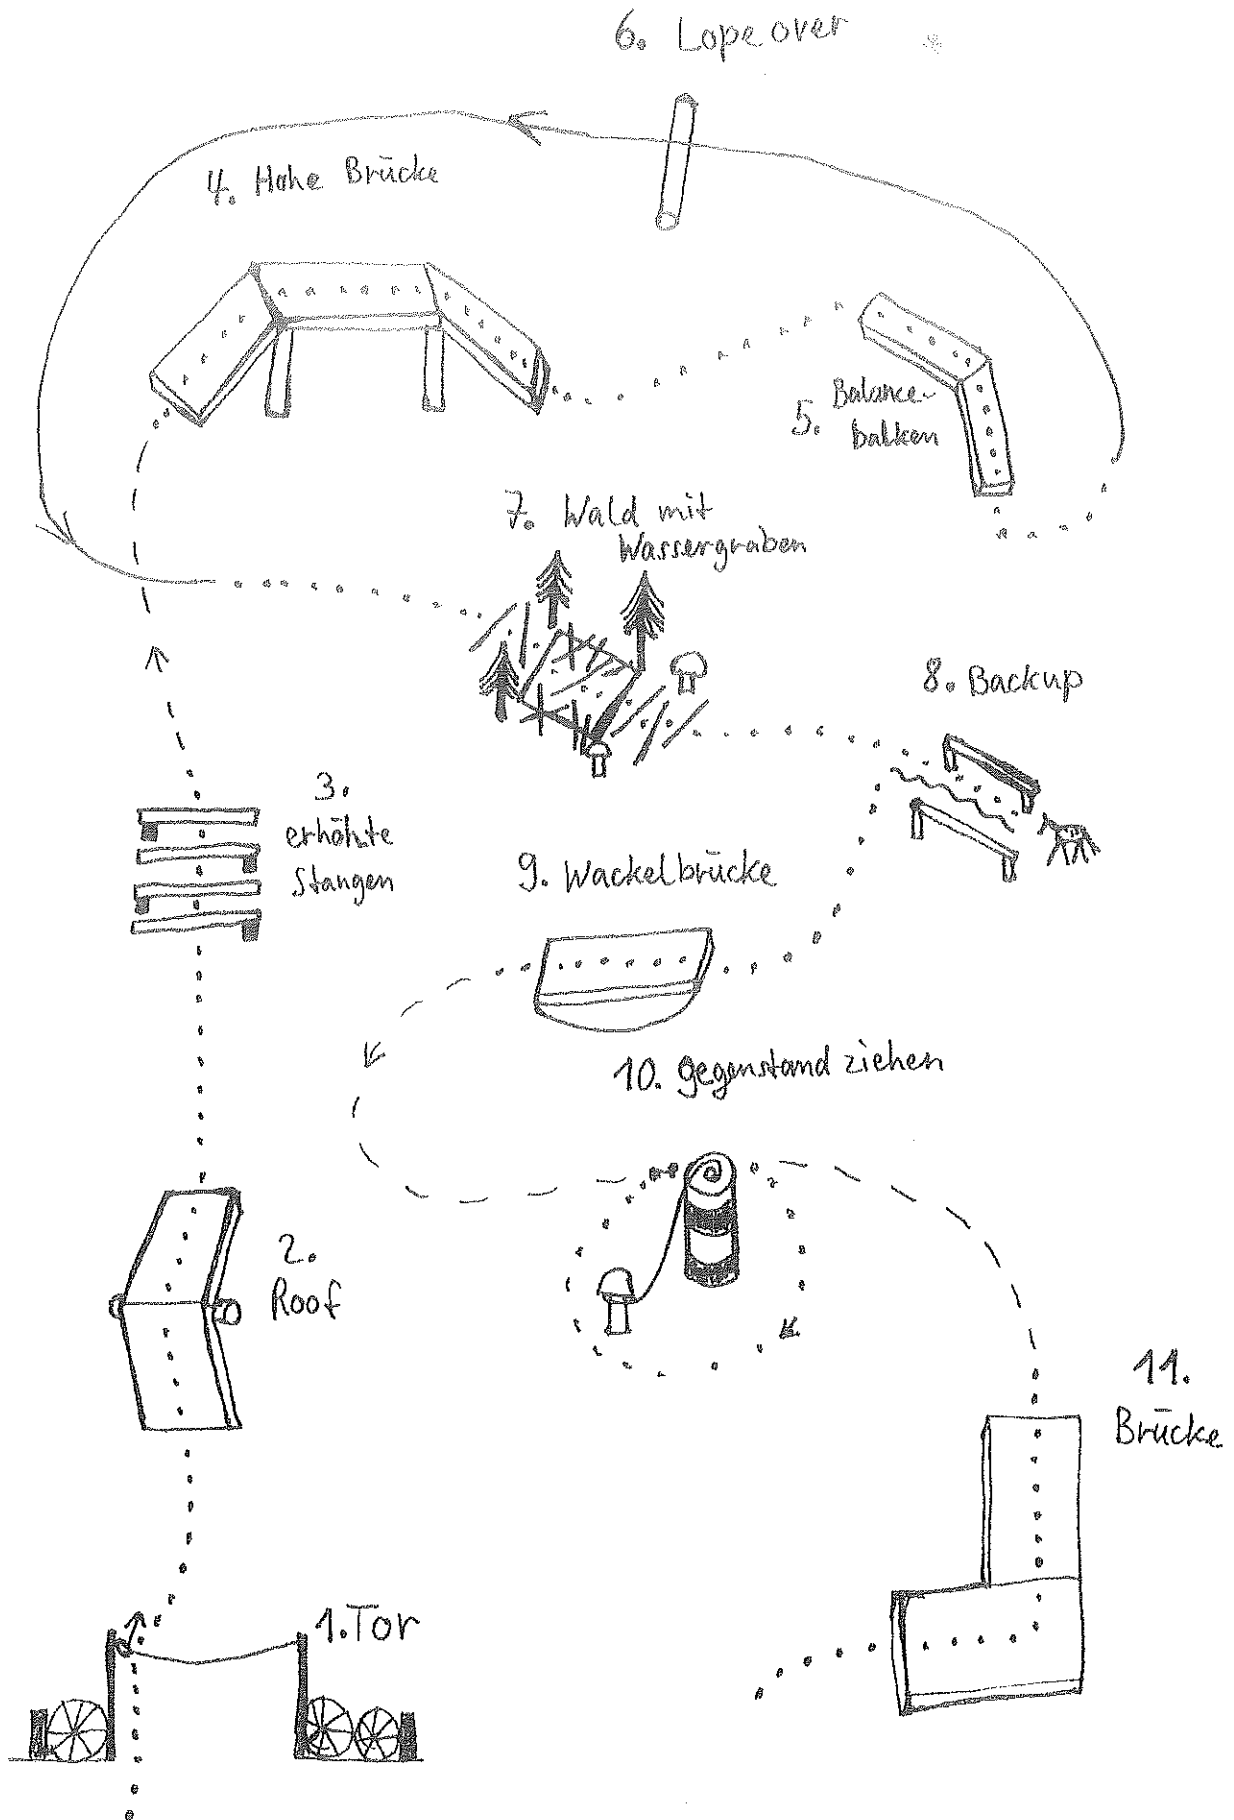 6. Lope over
4. Hohe Brücke
5. Balance-
balken
7. Wald mit
Wassergraben
8. Backup
3.
erhöhte
Stangen
9. Wackelbrücke
10. Gegenstand ziehen
2.
Roof
11.
Brücke
1. Tor